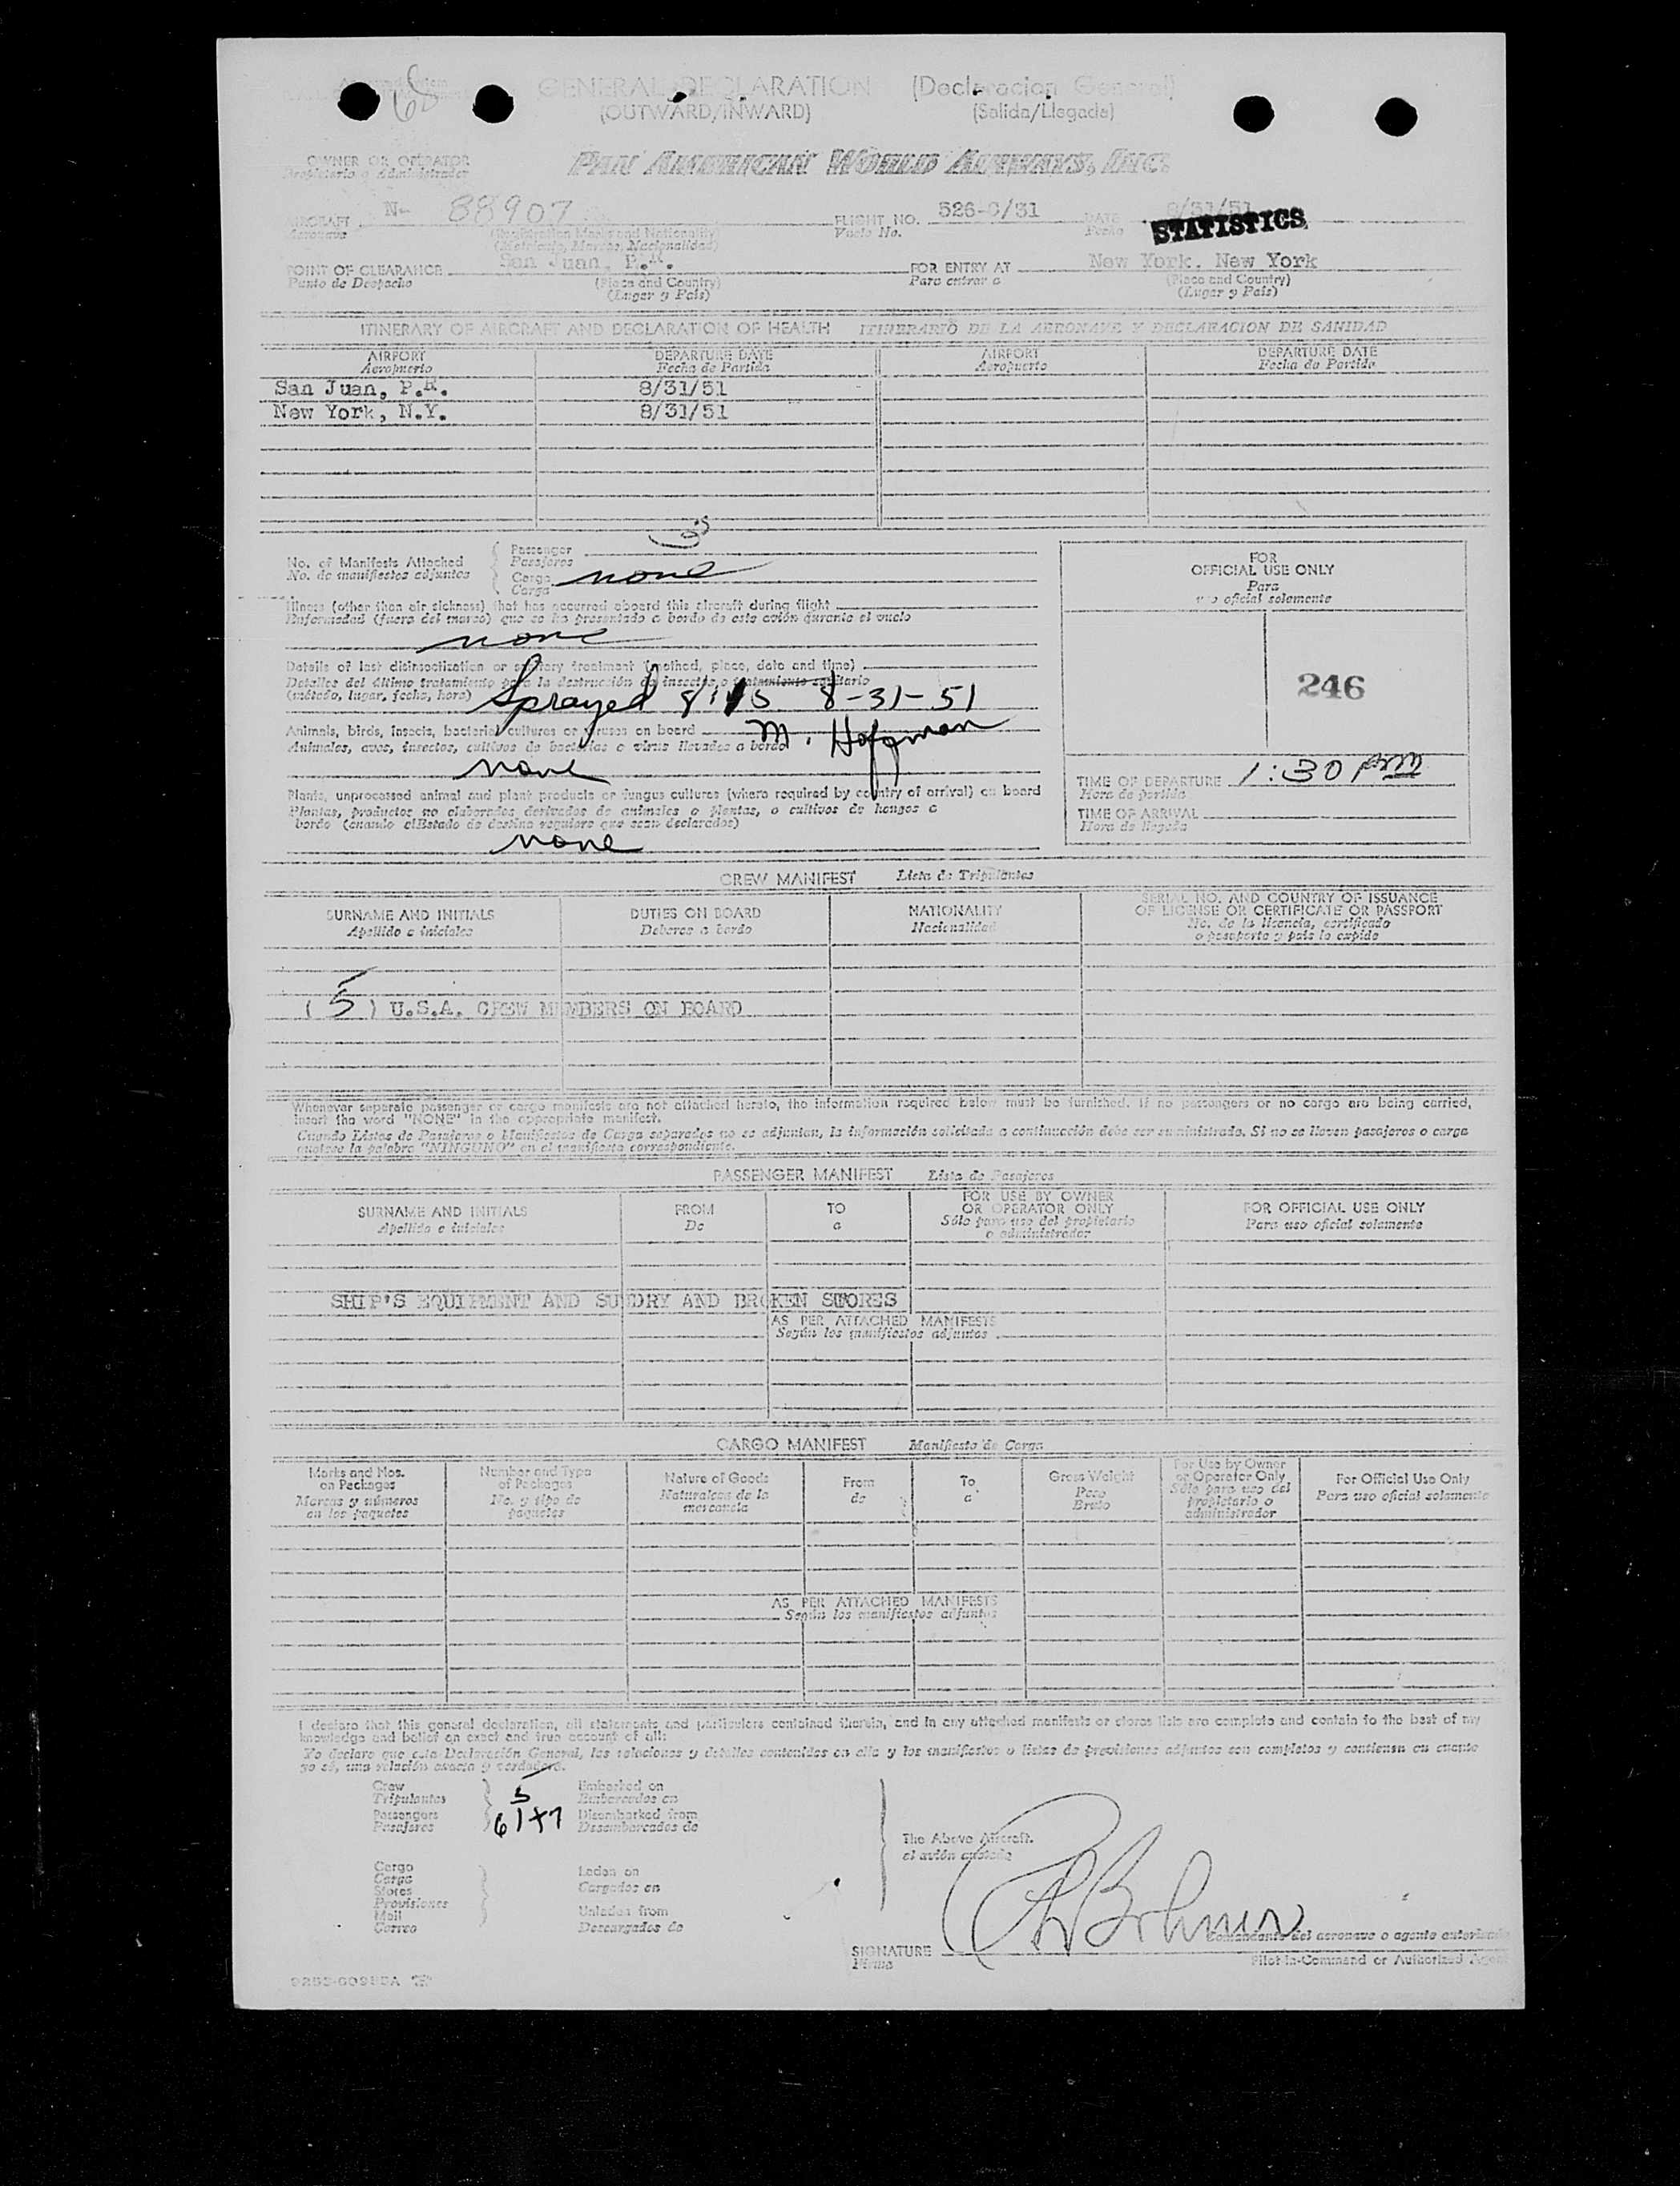 68
GENERAL DECLARATION (Declaracion General)
(OUTWARD/INWARD) (Salida/Llegada)
OWNER OR OPERATOR PAN AMERICAN WORLD AIRWAYS, INC.
Propietario o Administrador
AIRCRAFT N- 88907 FLIGHT NO. 526-8/31 DATE 8/31/51
Aeronave (Registration Marks and Nationality) Vuelo No. Fecha STATISTICS
(Matricula, Marcas, Nacionalidad)
POINT OF CLEARANCE San Juan, P.R. FOR ENTRY AT New York, New York
Punto de Despacho (Place and Country) Para entrar a (Place and Country)
(Lugar y País) (Lugar y País)
ITINERARY OF AIRCRAFT AND DECLARATION OF HEALTH ITINERARIO DE LA AERONAVE Y DECLARACION DE SANIDAD
AIRPORT DEPARTURE DATE AIRPORT DEPARTURE DATE
Aeropuerto Fecha de Partida Aeropuerto Fecha de Partida
San Juan, P.R. 8/31/51
New York, N.Y. 8/31/51
No. of Manifests Attached Passenger
No. de manifiestos adjuntos Pasajeros
Cargo none
Carga
Illness (other than air sickness) that has occurred aboard this aircraft during flight
Enfermedad (fuera del mareo) que se ha presentado a bordo de este avión durante el vuelo
none
Details of last disinsectization or sanitary treatment (method, place, date and time)
Detalles del último tratamiento para la destrucción de insectos, o tratamiento sanitario
(método, lugar, fecha, hora) Sprayed 8-31-51
Animals, birds, insects, bacterial cultures or viruses on board M. Hoffman
Animales, aves, insectos, cultivos de bacterias o virus llevados a bordo
none
Plants, unprocessed animal and plant products or fungus cultures (where required by country of arrival) on board
Plantas, productos no elaborados derivados de animales o plantas, o cultivos de hongos a
bordo (cuando el Estado de destino requiere que sean declarados)
none
FOR
OFFICIAL USE ONLY
Para
uso oficial solamente
246
TIME OF DEPARTURE 1:30 PM
Hora de partida
TIME OF ARRIVAL
Hora de llegada
CREW MANIFEST Lista de Tripulantes
SURNAME AND INITIALS DUTIES ON BOARD NATIONALITY SERIAL NO. AND COUNTRY OF ISSUANCE
OF LICENSE OR CERTIFICATE OR PASSPORT
Apellido e iniciales Deberes a bordo Nacionalidad No. de la licencia, certificado
o pasaporte y país lo expide
( 5 ) U.S.A. CREW MEMBERS ON BOARD
Whenever separate passenger or cargo manifests are not attached hereto, the information required below must be furnished. If no passengers or no cargo are being carried,
insert the word "NONE" in the appropriate manifest.
Cuando Listas de Pasajeros o Manifiestos de Carga separados no se adjuntan, la información solicitada a continuación debe ser suministrada. Si no se llevan pasajeros o carga
anótese la palabra "NINGUNO" en el manifiesto correspondiente.
PASSENGER MANIFEST Lista de Pasajeros
SURNAME AND INITIALS FROM TO FOR USE BY OWNER
OR OPERATOR ONLY FOR OFFICIAL USE ONLY
Apellido e iniciales De a Sólo para uso del propietario
o administrador Para uso oficial solamente
SHIP'S EQUIPMENT AND SUNDRY AND BROKEN STORES
AS PER ATTACHED MANIFESTS
Según los manifiestos adjuntos
CARGO MANIFEST Manifiesto de Carga
Marks and Nos. on Packages Number and Type of Packages Nature of Goods From To Gross Weight For Use by Owner or Operator Only For Official Use Only
Marcas y números en los paquetes No. y tipo de paquetes Naturaleza de la mercancía de a Peso Bruto Sólo para uso del propietario o administrador Para uso oficial solamente
AS PER ATTACHED MANIFESTS
Según los manifiestos adjuntos
I declare that this general declaration, all statements and particulars contained therein, and in any attached manifests or stores lists are complete and contain to the best of my
knowledge and belief an exact and true account of all:
Yo declaro que esta Declaración General, las relaciones y detalles contenidos en ella y los manifiestos o listas de provisiones adjuntos son completos y contienen en cuanto
yo sé, una relación exacta y verdadera.
Crew 5 Embarked on
Tripulantes Embarcados en
Passengers 61+7 Disembarked from
Pasajeros Desembarcados de
The Above Aircraft.
el avión custodia
Cargo Laden on
Carga Cargados en
Stores
Provisiones
Mail Unladen from
Correo Descargados de
SIGNATURE
Firma
Comandante del aeronave o agente autorizado
Pilot in-Command or Authorized Agent